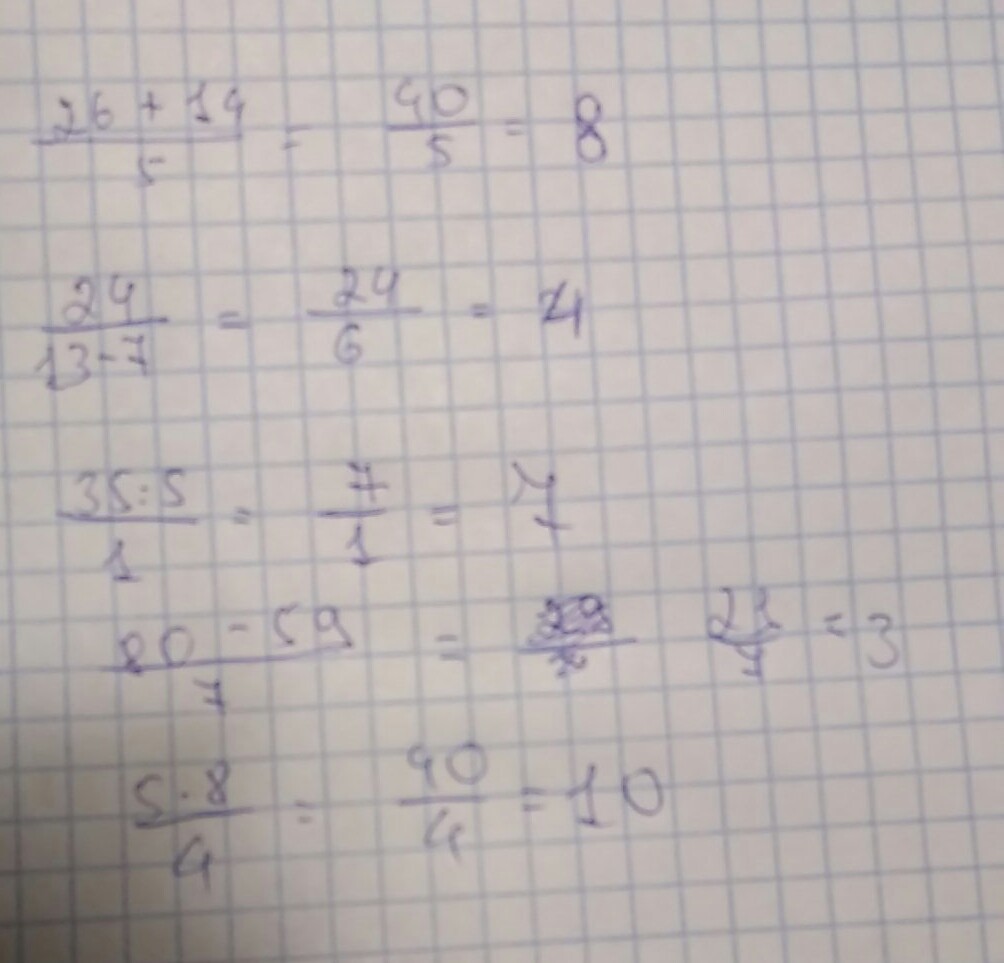 26 + 14 / 5 = 40 / 5 = 8
24 / 13 - 7 = 24 / 6 = 4
35 : 5 / 1 = 7 / 1 = 7
80 - 59 / 7 = 21 / 7 = 3
5 · 8 / 4 = 40 / 4 = 10